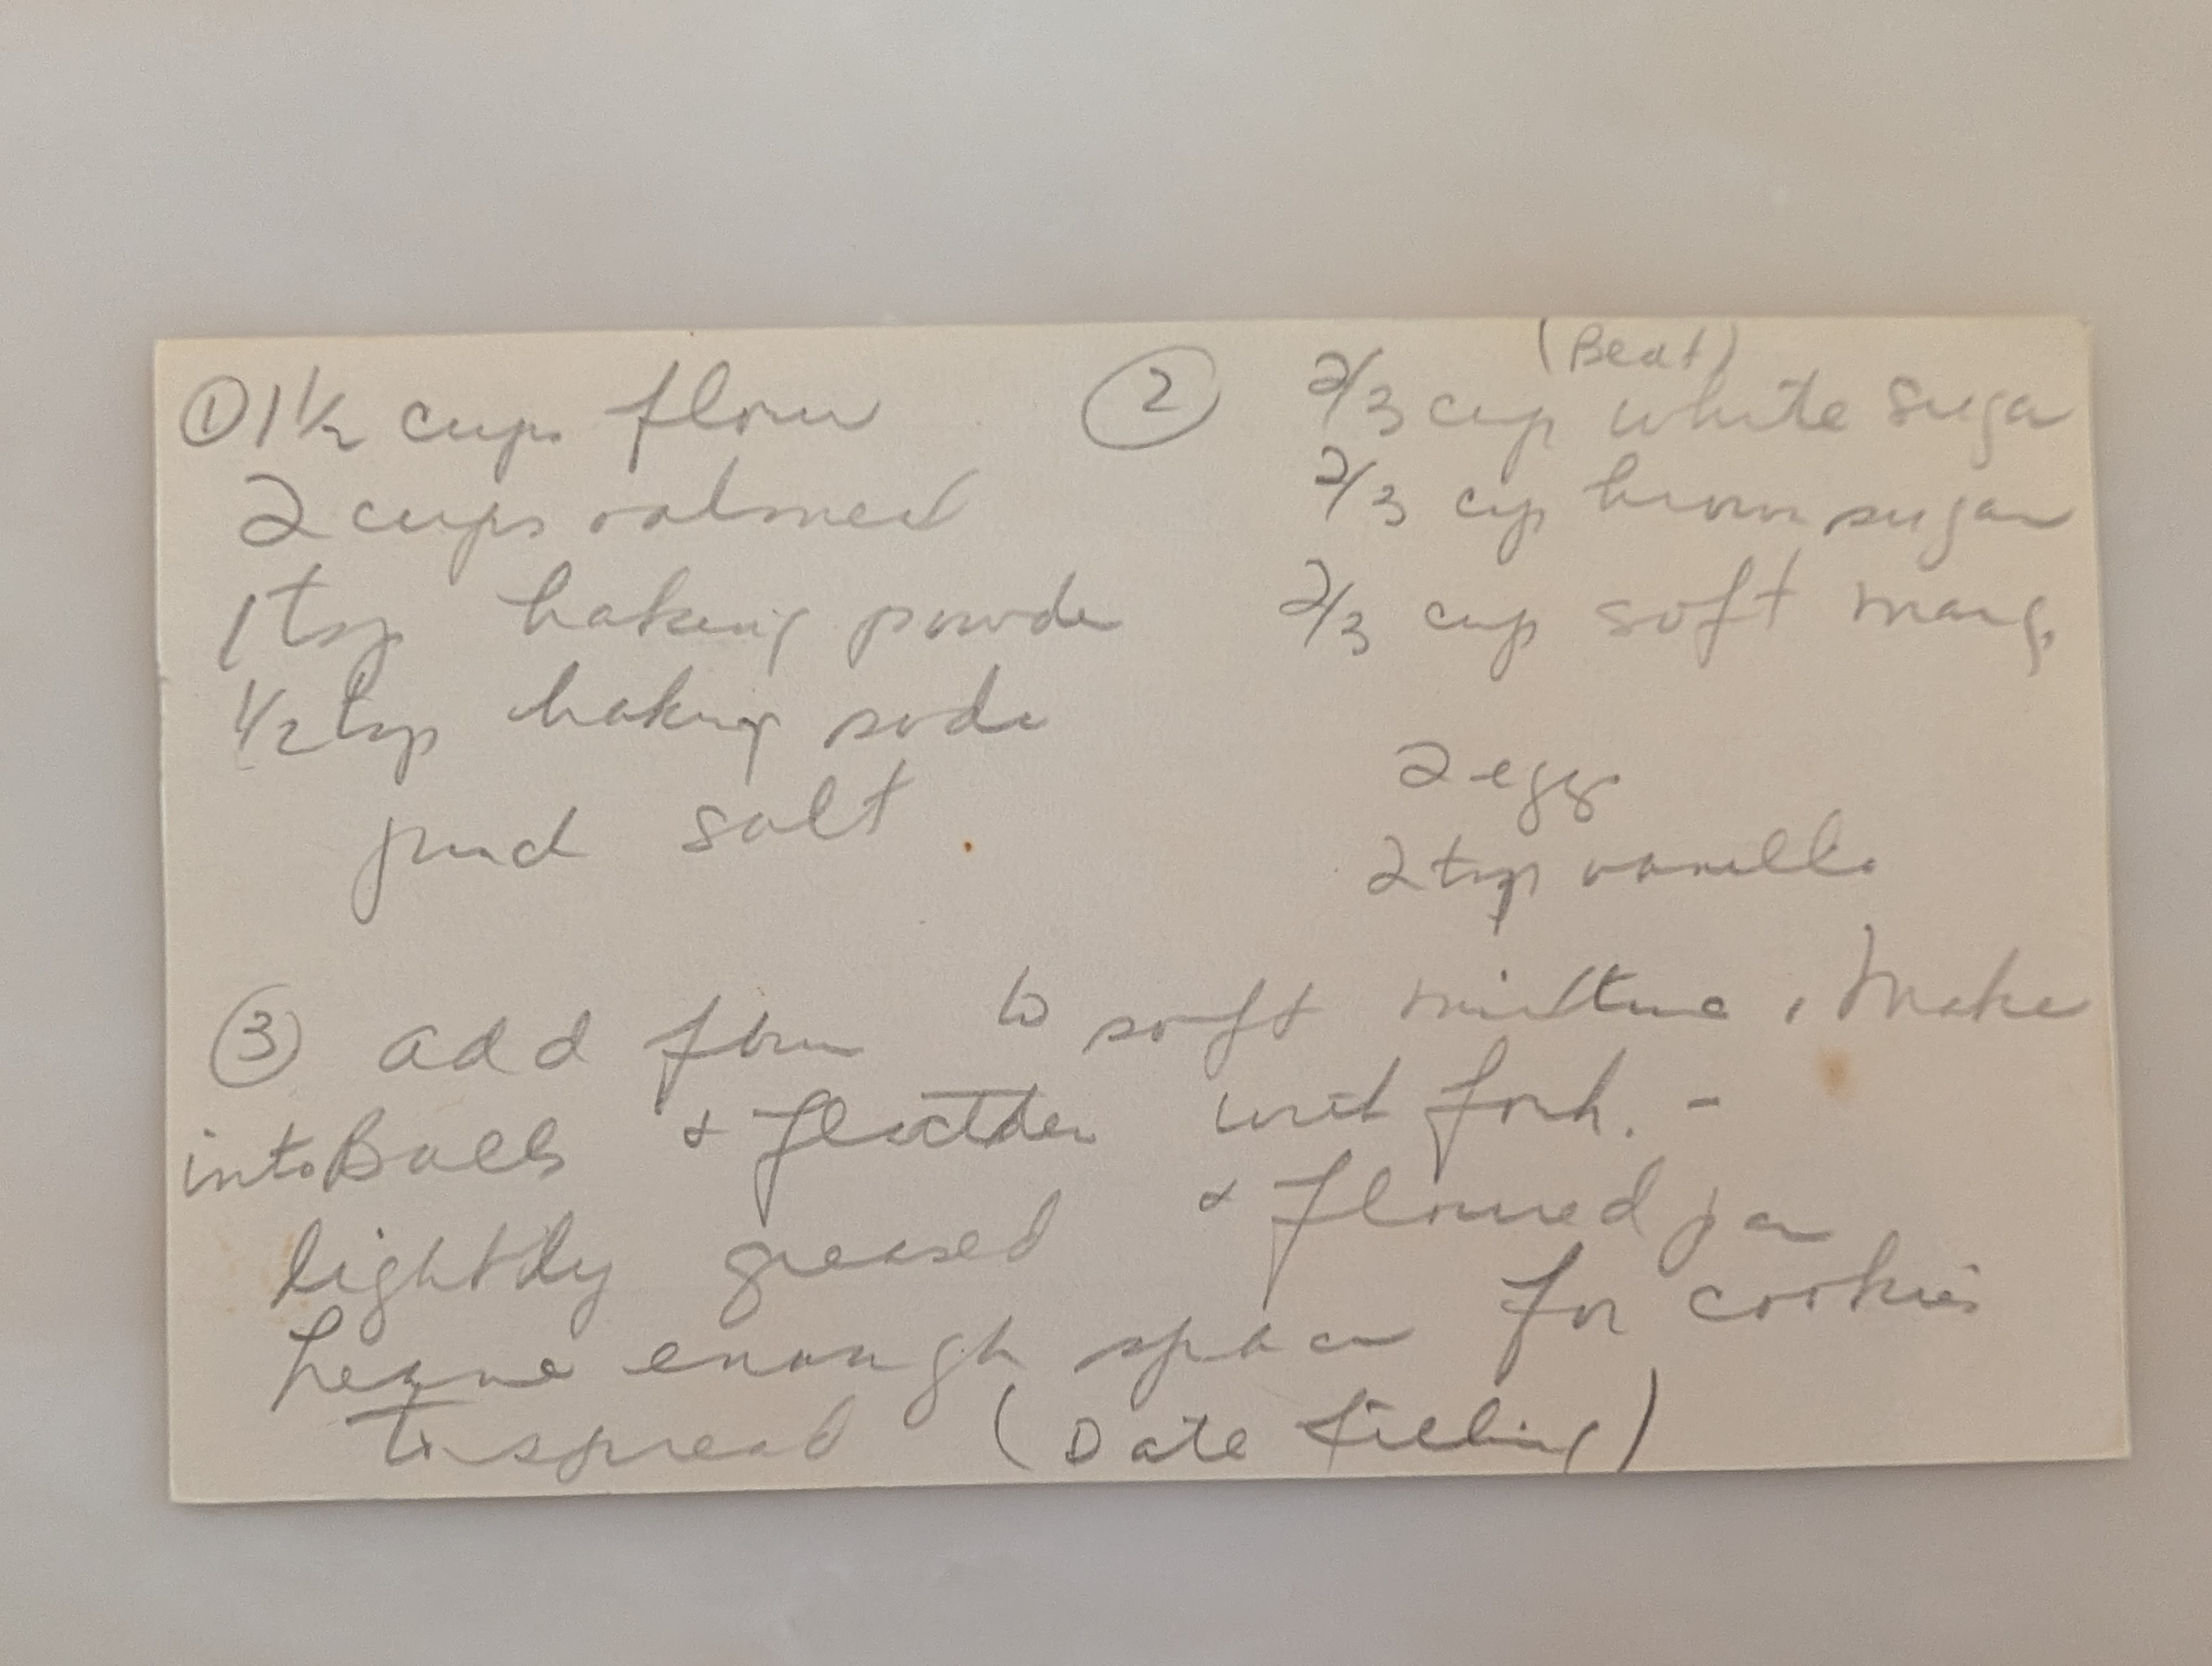 ① 1½ cups flour
2 cups oatmeal
1 tsp baking powder
½ tsp baking soda
pinch salt.
② (Beat)
2/3 cup white sugar
2/3 cup brown sugar
2/3 cup soft marg.
2 eggs
2 tsp vanilla
③ add flour to soft mixture. Make
into Balls & flatten with fork. -
lightly greased & floured pan
Leave enough space for cookies
to spread (Date filling)